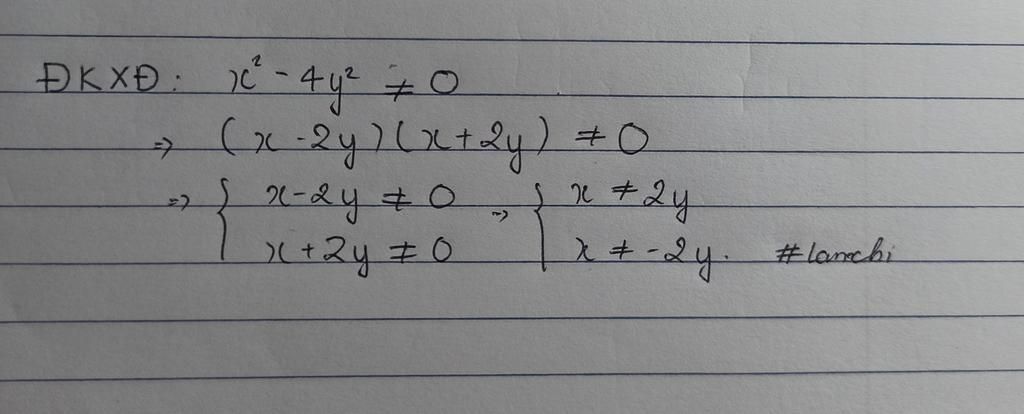 ĐKXĐ: x² - 4y² ≠ 0
=> (x - 2y)(x + 2y) ≠ 0
=> { x - 2y ≠ 0 => { x ≠ 2y
x + 2y ≠ 0 x ≠ -2y. #lanchi